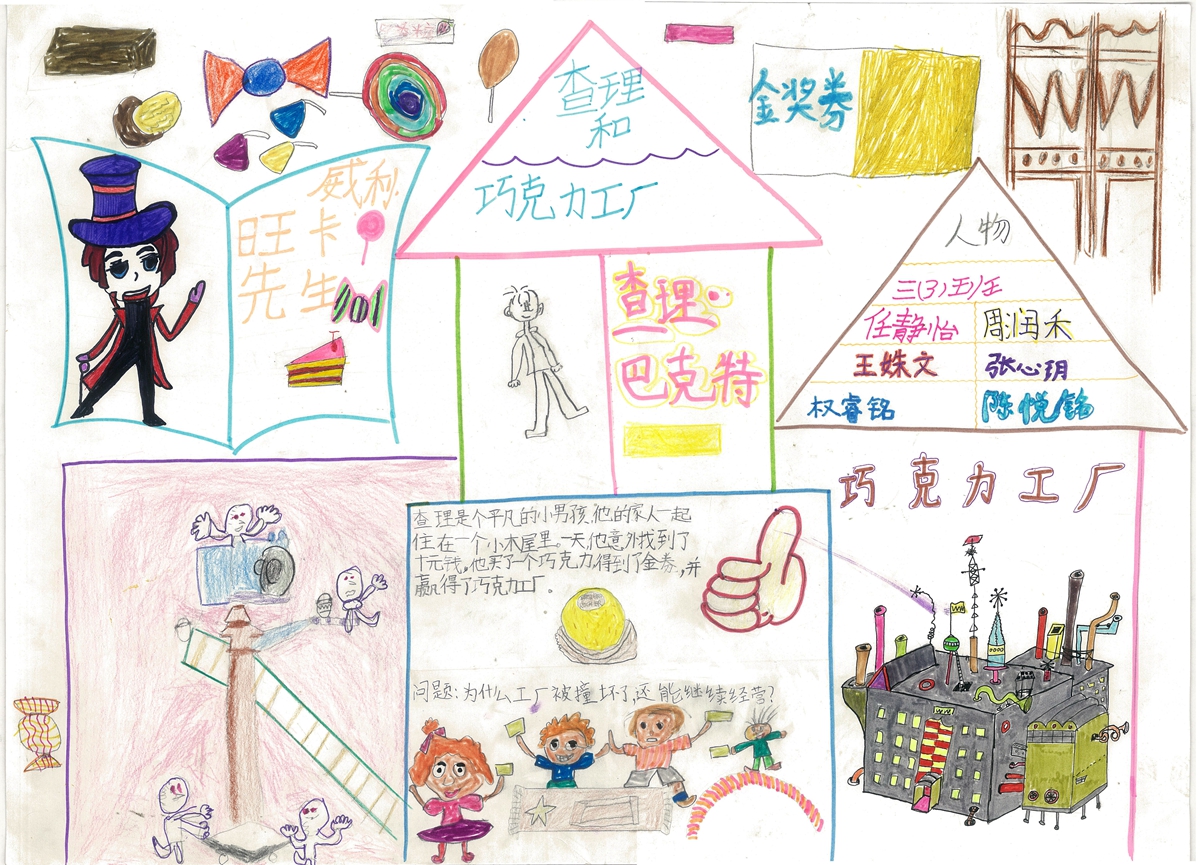 查理
和
巧克力工厂
金奖券
W W
威利
旺卡
先生
查理
巴克特
人物
三(3)班
任静怡
周润禾
王姝文
张心玥
权睿铭
陈悦铭
巧克力工厂
查理是个平凡的小男孩.他的家人一起
住在一个小木屋里。一天,他意外找到了
十元钱,他买了一个巧克力得到了金券,并
赢得了巧克力工厂。
问题:为什么工厂被撞坏了,还能继续经营?